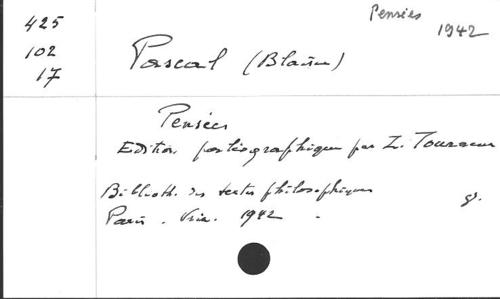 425
102
17
Pensées
1942
Pascal (Blaise)
Pensées
Edition paléographique par Z. Tourneur
Biblioth. des textes philosophiques
Paris. Vrin. 1942.
8°.